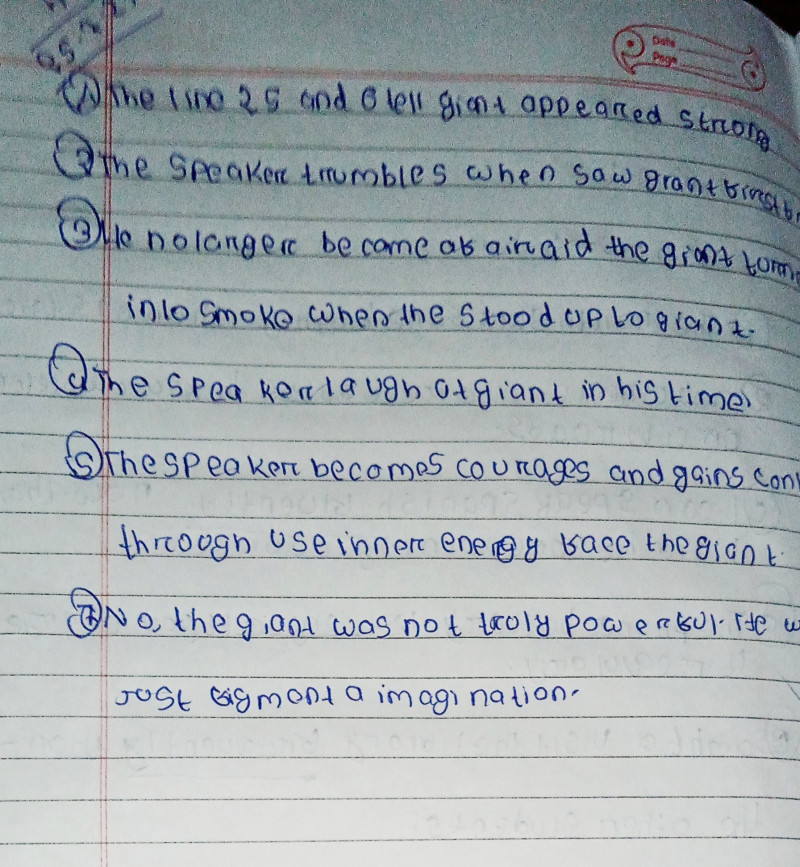 Date
Page
Q,5
① The line 25 and 6 tell giant appeared strong
② The Speaker trumbles when saw giant first
③ He nolanger became as airaid the giant turn
into smoke when the stood up to giant.
④ The Speaker laugh at giant in his time.
⑤ The speaker becomes courages and gains con
through use inner energy face the giant.
⑦ No, the giant was not truly powerful. He w
Just figment a imagination.